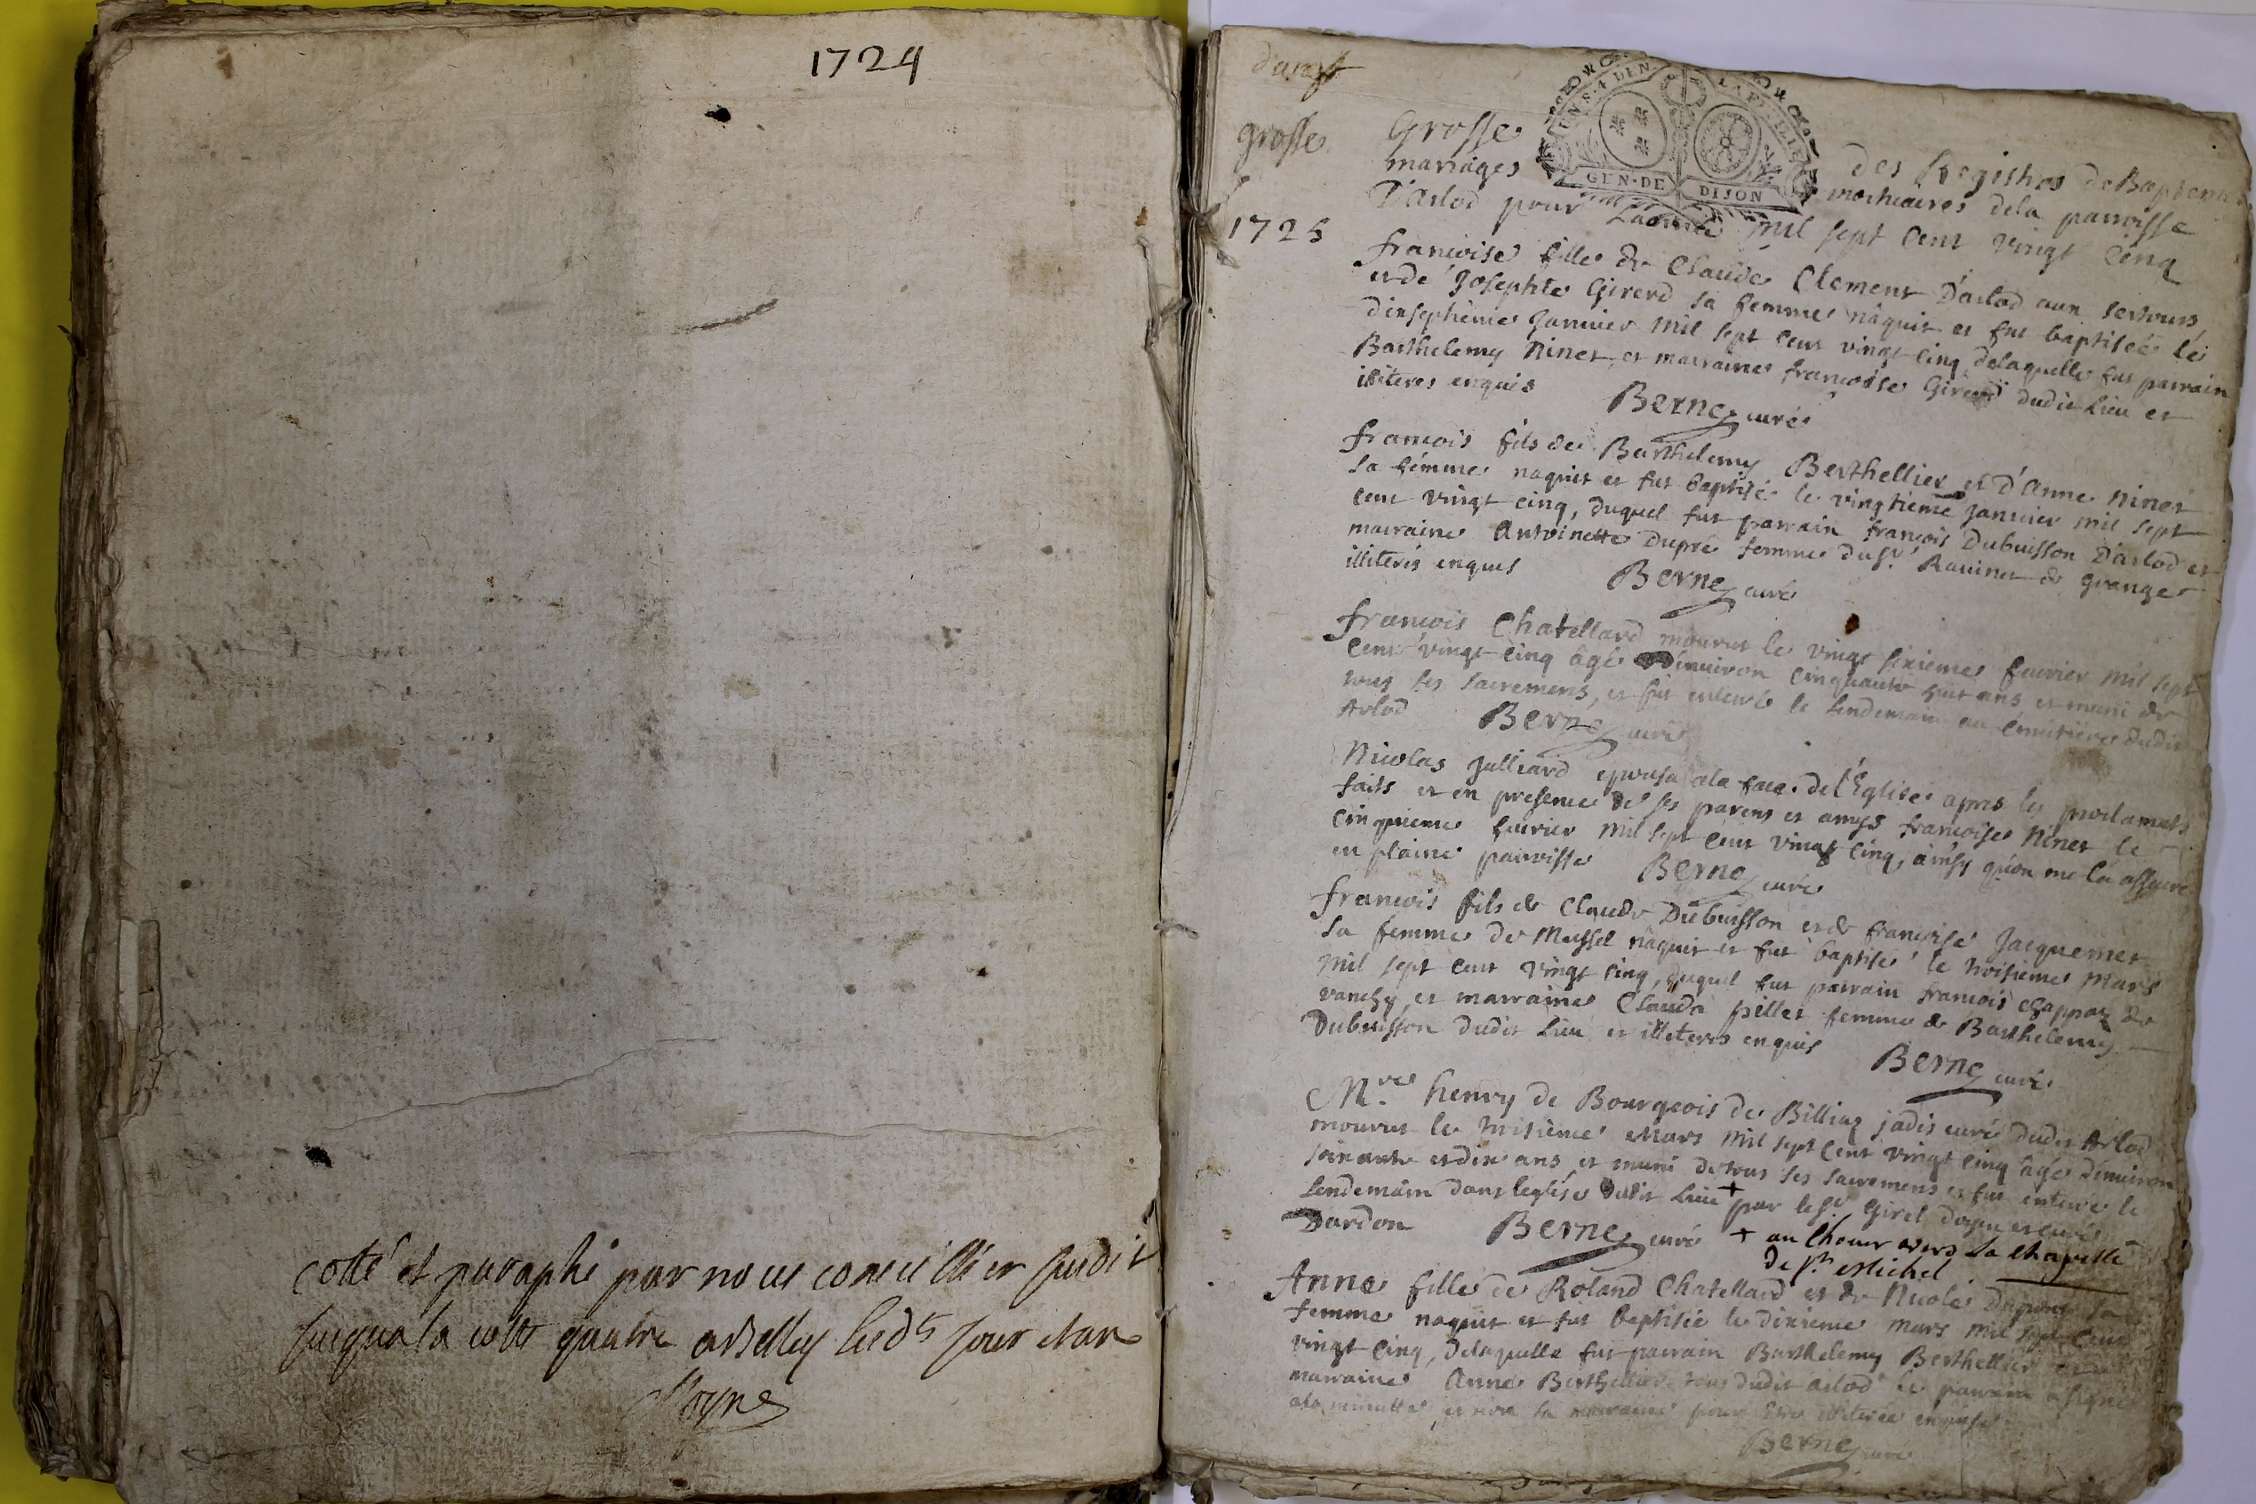 1724
cotté et paraphé par nous conseillier susdit
jusqua la cotte quatre a Belley lesd. jour et an
grosse
1725
Grosse des Registres de Baptemes
mariages mortuaires dela parroisse
D'Arlod pour Lannée mil sept cent vingt cinq
GEN·DE DIJON
francoise fille de Claude Clement D'arlod aux
et de Josephte Girerd sa femme nâquit et fut baptisée le
dixseptieme Janvier mil sept cent vingt cinq delaquelle fut parrain
Barthelemy Ninet, et marraine francoise Girerd dudit Lieu et
illiteres enquis Berne curé
francois fils de Barthelemy Berthellier et d'Anne Ninet
sa femme naquit et fut baptisé le vingtieme Janvier mil sept
cent vingt cinq, duquel fut parrain francois Dubuisson D'arlod et
marraine Antoinette Dupré femme du Sr. Ravinet de Grange
illiteris enquis Berne curé
francois Chatellard mourut le vingt sixieme fevrier mil sept
cent vingt cinq âgé d'environ cinquante huit ans et muni de
tous ses sacremens, et fut enterré le lendemain au cimitiere dudit
Arlod Berne curé
Nicolas Julliard epousa ala face de l'Eglise apres les proclamats
faits et en presence de ses parens et amys francoise Ninet le
cinquieme fevrier mil sept cent vingt cinq, ainsy qu'on me l'a assuré
en plaine parroisse Berne curé
francois fils de Claude Dubuisson et de francoise Jacquemet
sa femme de Mussel nâquit et fut baptisé le troisieme Mars
mil sept cent vingt cinq, duquel fut parrain francois Chappaz de
vanchy, et marraine Claudâ pillet femme de Barthelemy
Dubuisson dudit Lieu et illiteres enquis Berne curé
Mre. henry de Bourgeois de Billiaz jadis curé dudit Arlod
mourut le troisieme Mars mil sept cent vingt cinq âgé d'environ
soixante et dix ans et muni de tous ses sacremens et fut enterré le
lendemain dans leglise dudit Lieu + par le Sr. Girel doyen et curé
Dardon Berne curé + au Choeur vers la chapelle
de St. Michel
Anne fille de Roland Chatellard et de Nicole Dupont sa
femme naquit et fut baptisée le dixieme Mars mil sept cent
vingt cinq, delaquelle fut parrain Barthelemy Berthellier et
marraine Anne Berthellier tous dudit arlod le parrain a signé
ala minutte et non la marraine pour être illiterée enquise
Berne curé